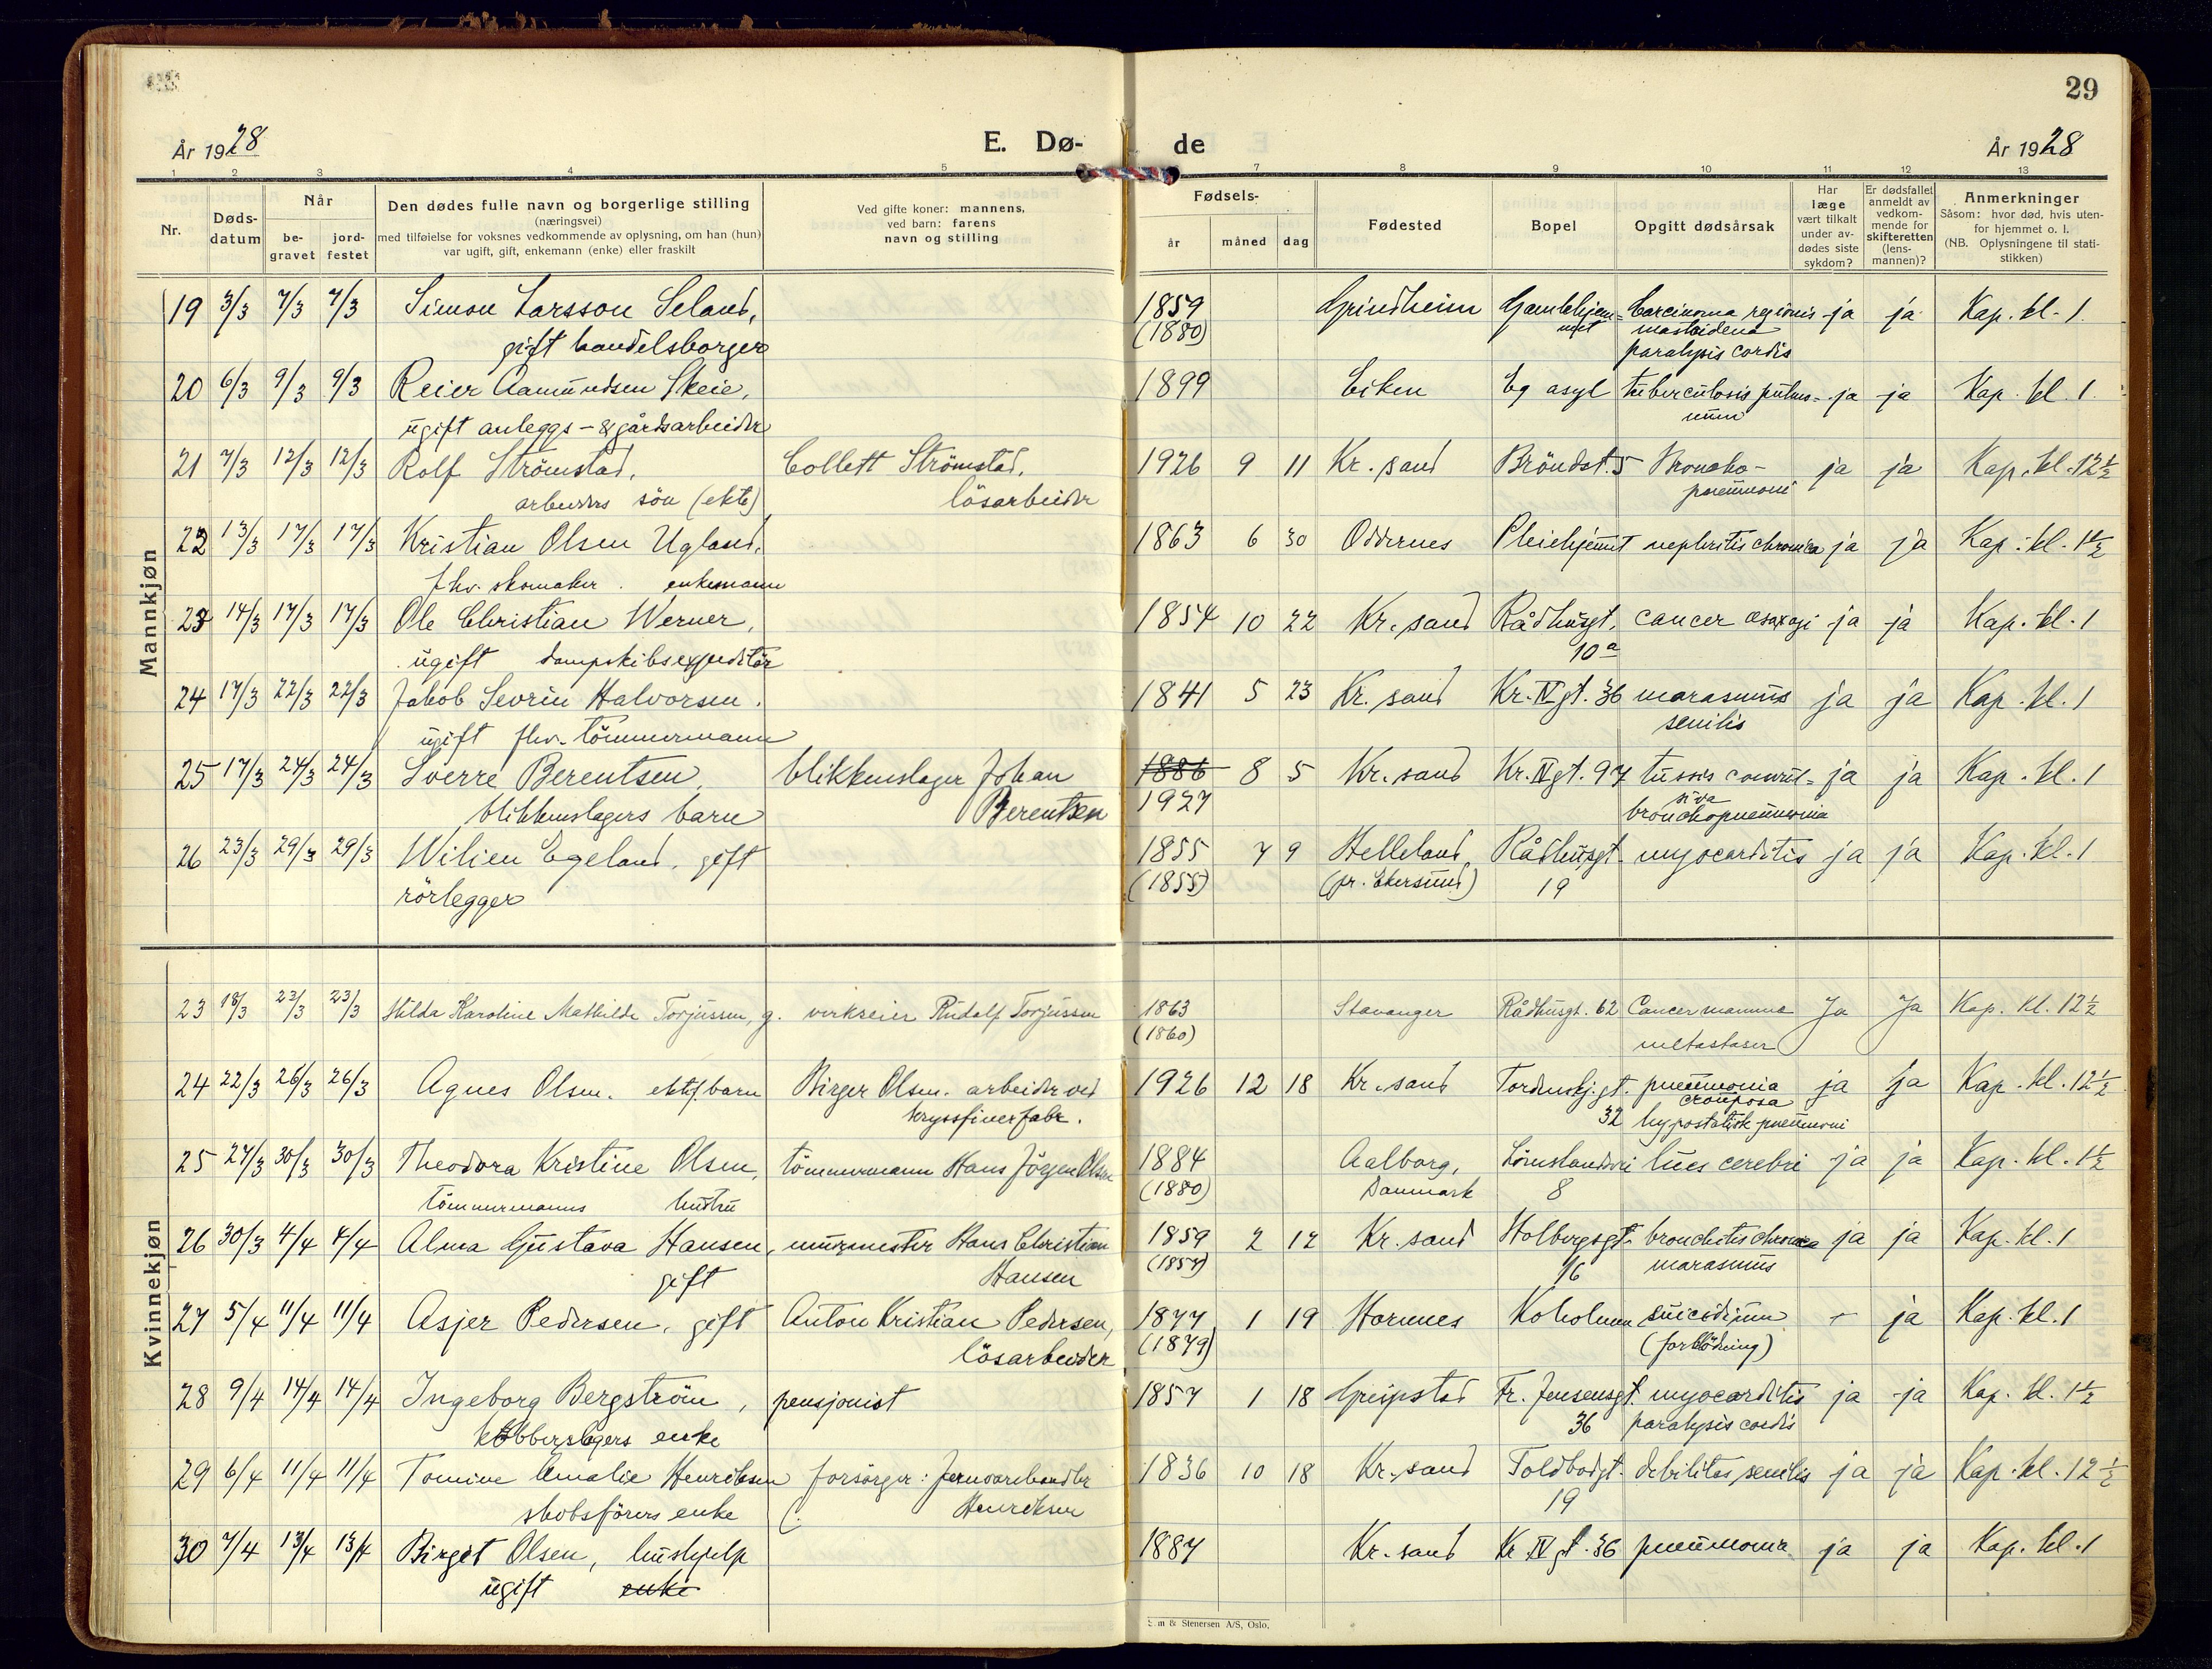 29
År 1928
E. Dø-
de
År 1928
1 2 3 4 5 7 8 9 10 11 12 13
Nr.
Døds-
datum
Når
be-
gravet
jord-
festet
Den dødes fulle navn og borgerlige stilling
(næringsvei)
med tilføielse for voksnes vedkommende av oplysning, om han (hun)
var ugift, gift, enkemann (enke) eller fraskilt
Ved gifte koner: mannens,
ved barn: farens
navn og stilling
Fødsels-
år måned dag
Fødested
Bopel
Opgitt dødsårsak
Har
læge
vært tilkalt
under av-
dødes siste
sykdom?
Er dødsfallet
anmeldt av
vedkom-
mende for
skifteretten
(lens-
mannen)?
Anmerkninger
Såsom: hvor død, hvis uten-
for hjemmet o. l.
(NB. Oplysningene til stati-
stikken)
Mannkjøn
19 3/3 7/3 7/3 Simon Larsson Seland, 1859 Grindheim Gamlehjem- Carcinoma regionis ja ja Kap. kl. 1
gift handelsborger (1880) met mastoidena
paralysis cordis
20 6/3 9/3 9/3 Reier Aamundsen Skeie, 1899 Eiken Eg asyl tuberculosis pulmo- ja ja Kap. kl. 1
ugift anleggs- & gårdsarbeider num
21 7/3 12/3 12/3 Rolf Strömstad, Collett Strömstad, 1926 9 11 Kr. sand Bröndst. 5 Broncho- ja ja Kap. kl. 12½
arbeiders sön (ekte) lösarbeider pneumoni
22 13/3 17/3 17/3 Kristian Olsen Ugland, 1863 6 30 Oddernes Pleiehjemt nephritis chronica ja ja Kap. kl. 1½
fhv. skomaker. enkemann
23 14/3 17/3 17/3 Ole Christian Werner, 1854 10 22 Kr. sand Rådhusgt. cancer ja ja Kap. kl. 1
ugift dampskibsexpeditör 10a
24 17/3 22/3 22/3 Jakob Sevrin Halvorsen. 1841 5 23 Kr. sand Kr. IV gt. 36 marasmus ja ja Kap. kl. 1
ugift fhv. tömmermann senilis
25 17/3 24/3 24/3 Sverre Berentsen, blikkenslager Johan 1886 8 5 Kr. sand Kr. IV gt. 97 tussis convul- ja ja Kap. kl. 1
blikkenslagers barn Berentsen 1927 siva
bronchopneumonia
26 23/3 29/3 29/3 Wilien Egeland, gift 1855 7 9 Helleland, Rådhusgt. myocarditis ja ja Kap. kl. 1
rörlegger (1855) (pr. Ekersund) 19
Kvinnekjøn
23 18/3 23/3 23/3 Hilda Karoline Mathilde Torjussen, g. verkseier Rudolf Torjussen 1863 Stavanger Rådhusgt. 62 Cancer mamma Ja Ja Kap. kl. 12½
(1860) metastaser
24 22/3 26/3 26/3 Agnes Olsen. ektef. barn Birger Olsen. arbeider ved 1926 12 18 Kr. sand Tordenskj. gt. pneumonia ja ja Kap. kl. 12½
kryssfinerfabr. crouposa
32 hypostatisk pneumoni
25 27/3 30/3 30/3 Theodora Kristine Olsen, tömmermann Hans Jörgen Olsen 1884 Aalborg, lues cerebri ja ja Kap. kl. 1½
tömmermanns hustru (1880) Danmark 8
26 30/3 4/4 4/4 Alma Gustava Hansen, murmester Hans Christian 1859 2 12 Kr. sand Holbergsgt. bronchitis chronica ja ja Kap. kl. 1
gift Hansen (1857) 16 marasmus
27 5/4 11/4 11/4 Asjer Pedersen, gift Anton Kristian Pedersen, 1877 1 19 Hornnes Kokolmen suicidium - ja Kap. kl. 1
lösarbeider (1879) (forblödning)
28 9/4 14/4 14/4 Ingeborg Bergström, pensjonist 1857 1 18 Greipstad Fr. Jensensgt. myocarditis ja ja Kap. kl. 1½
kobberslagers enke 36 paralysis cordis
29 6/4 11/4 11/4 Tomine Amalie Henriksen forsörger: Jernvarehandler 1836 10 18 Kr. sand Toldbodgt. debilitas senilis ja ja Kap. kl. 12½
skibsförers enke Henriksen 19
30 7/4 13/4 13/4 Birgit Olsen, hushjelp 1887 Kr. sand Kr. IV gt. 36 pneumonia ja ja Kap. kl. 1
ugift enke
Sem & Stenersen A/S, Oslo.